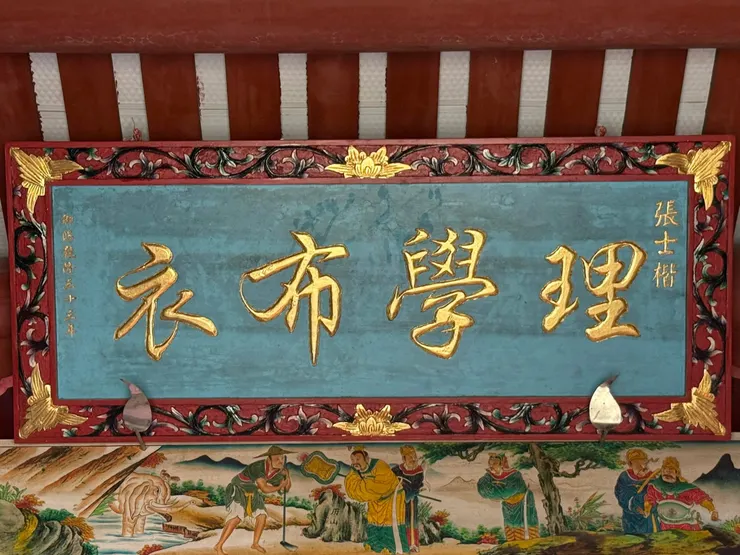 張士楷
理學布衣